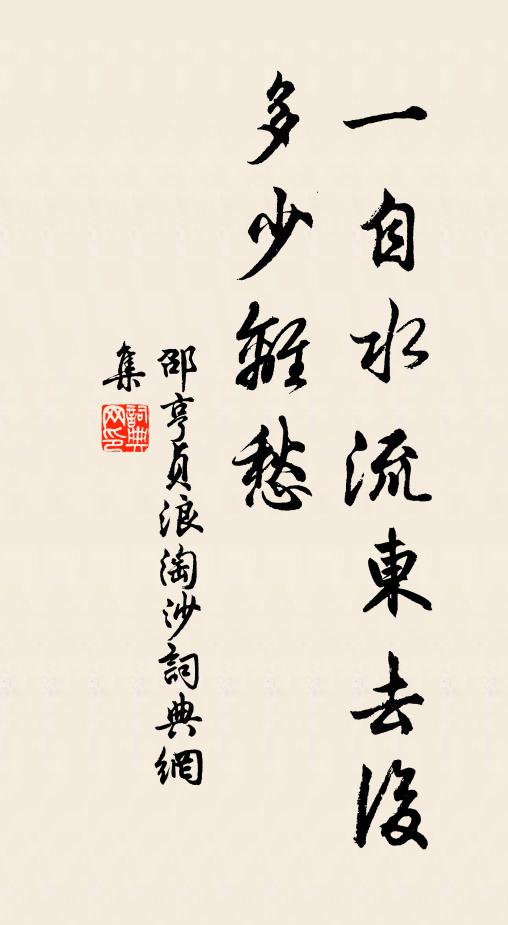 一自水流東去後
多少離愁
邵亨貞浪淘沙詞典網
集
詞典
网印